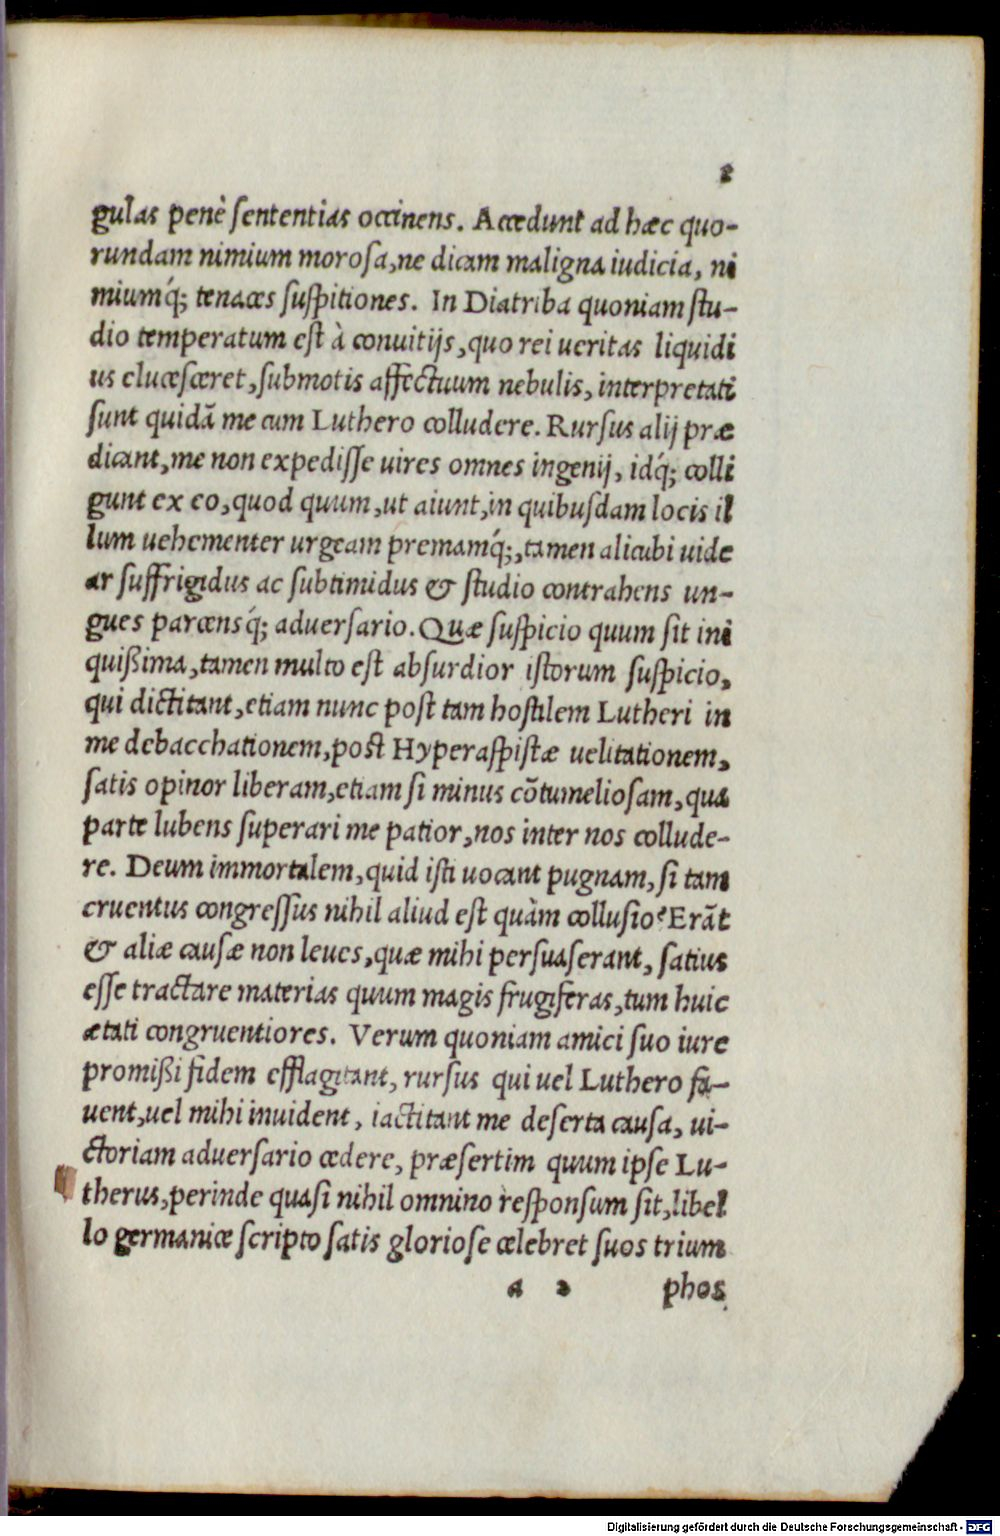 2
gulas penè sententias occinens. Accedunt ad hæc quo-
rundam nimium morosa, ne dicam maligna iudicia, ni
miumq́; tenaces suspitiones. In Diatriba quoniam stu-
dio temperatum est à conuitijs, quo rei ueritas liquidi
us elucesceret, submotis affectuum nebulis, interpretati
sunt quidã me cum Luthero colludere. Rursus alij præ
dicant, me non expedisse uires omnes ingenij, idq́; colli
gunt ex eo, quod quum, ut aiunt, in quibusdam locis il
lum uehementer urgeam premamq́;, tamen alicubi uide
ar suffrigidus ac subtimidus & studio contrahens un-
gues parcensq́; aduersario. Quæ suspicio quum sit ini
quißima, tamen multo est absurdior istorum suspicio,
qui dictitant, etiam nunc post tam hostilem Lutheri in
me debacchationem, post Hyperaspistæ uelitationem,
satis opinor liberam, etiam si minus cõtumeliosam, qua
parte lubens superari me patior, nos inter nos collude-
re. Deum immortalem, quid isti uocant pugnam, si tam
cruentus congressus nihil aliud est quàm collusio? Erãt
& aliæ causæ non leues, quæ mihi persuaserant, satius
esse tractare materias quum magis frugiferas, tum huic
ætati congruentiores. Verum quoniam amici suo iure
promißi fidem efflagitant, rursus qui uel Luthero fa-
uent, uel mihi inuident, iactitant me deserta causa, ui-
ctoriam aduersario cedere, præsertim quum ipse Lu-
therus, perinde quasi nihil omnino responsum sit, libel
lo germanice scripto satis gloriose celebret suos trium
a 2 phos
Digitalisierung gefördert durch die Deutsche Forschungsgemeinschaft - DFG